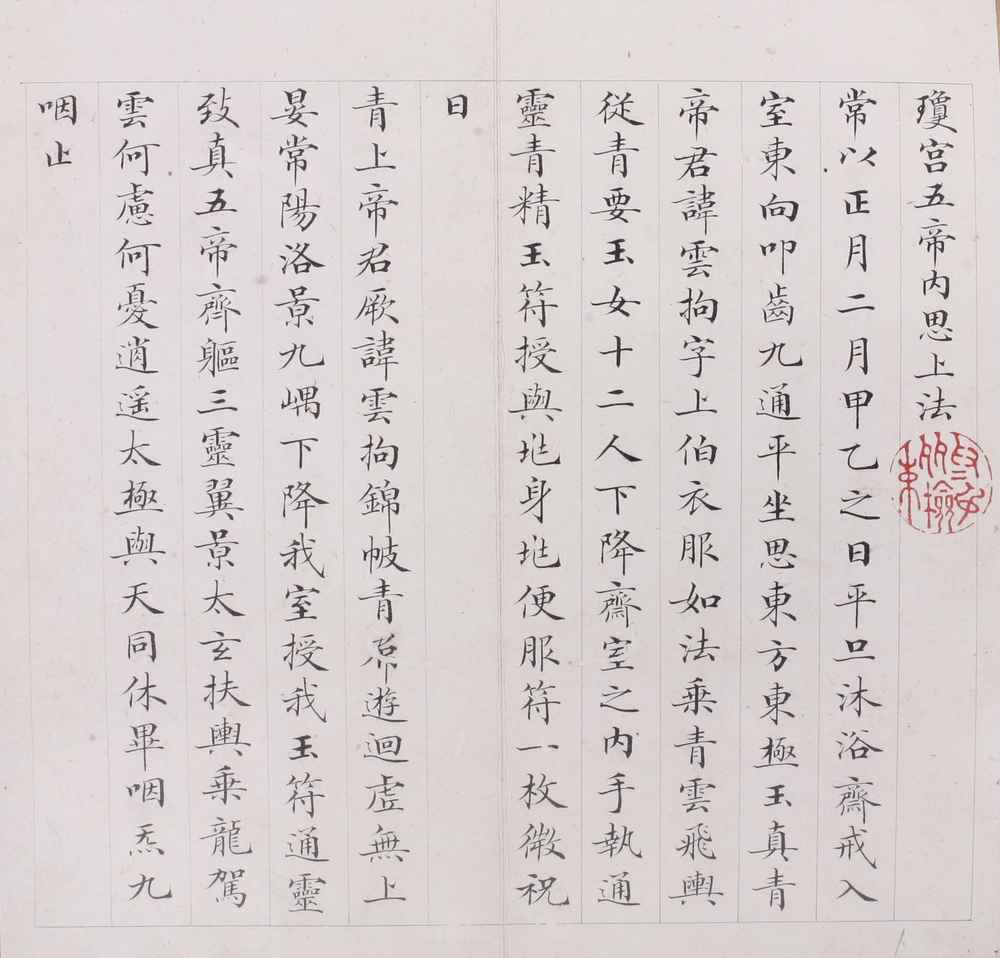 瓊宫五帝内思上法
常以正月二月甲乙之日平旦沐浴齋戒入
室東向叩齒九通平坐思東方東極玉真青
帝君諱雲拘字上伯衣服如法乗青雲飛輿
從青要玉女十二人下降齋室之内手執通
靈青精玉符授與地身地便服符一枚微祝
曰
青上帝君厥諱雲拘錦帔青帬遊迴虚無上
晏常陽洛景九嵎下降我室授我玉符通靈
致真五帝齊軀三靈翼景太玄扶輿乗龍駕
雲何慮何憂逍遥太極與天同休畢咽炁九
咽止